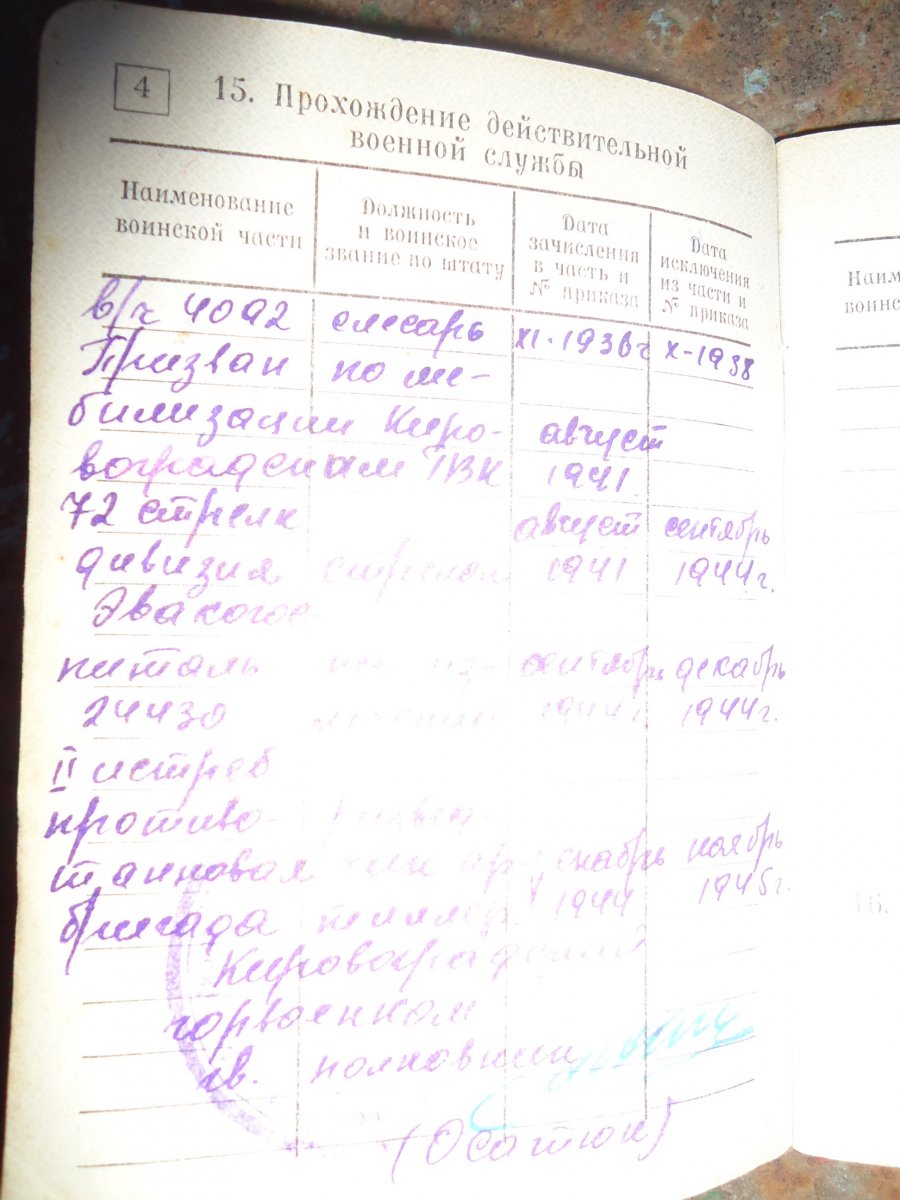 4
15. Прохождение действительной
военной службы
Наименование
воинской части
Должность
и воинское
звание по штату
Дата
зачисления
в часть и
№ приказа
Дата
исключения
из части и
№ приказа
в/ч 4092 слесарь XI-1936г X-1938
Призван по мо-
билизации Киро- август
воградским ГВК 1941
72 стрелк. август сентябрь
дивизия стрелок 1941 1944г.
Эвакогос
питаль сентябрь декабрь
24430 1944г 1944г.
II истреб
противо-
танковая декабрь ноябрь
бригада 1944 1945г.
Кировоградский
горвоенком
гв. полковник
(Осатюк)
Наим
воинс
16.